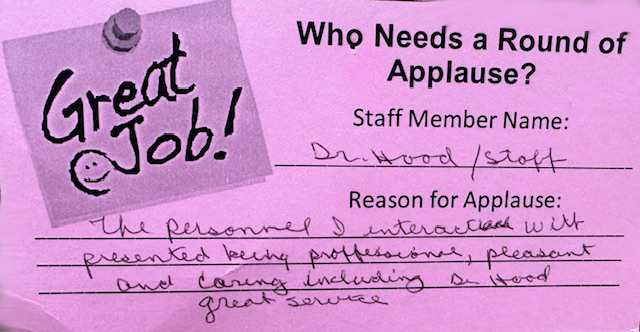 Great
Job!
Who Needs a Round of
Applause?
Staff Member Name:
Dr. Hood / Staff
Reason for Applause:
The personnel I interacted with
presented being proffessional, pleasant
and caring including Dr Hood
great service